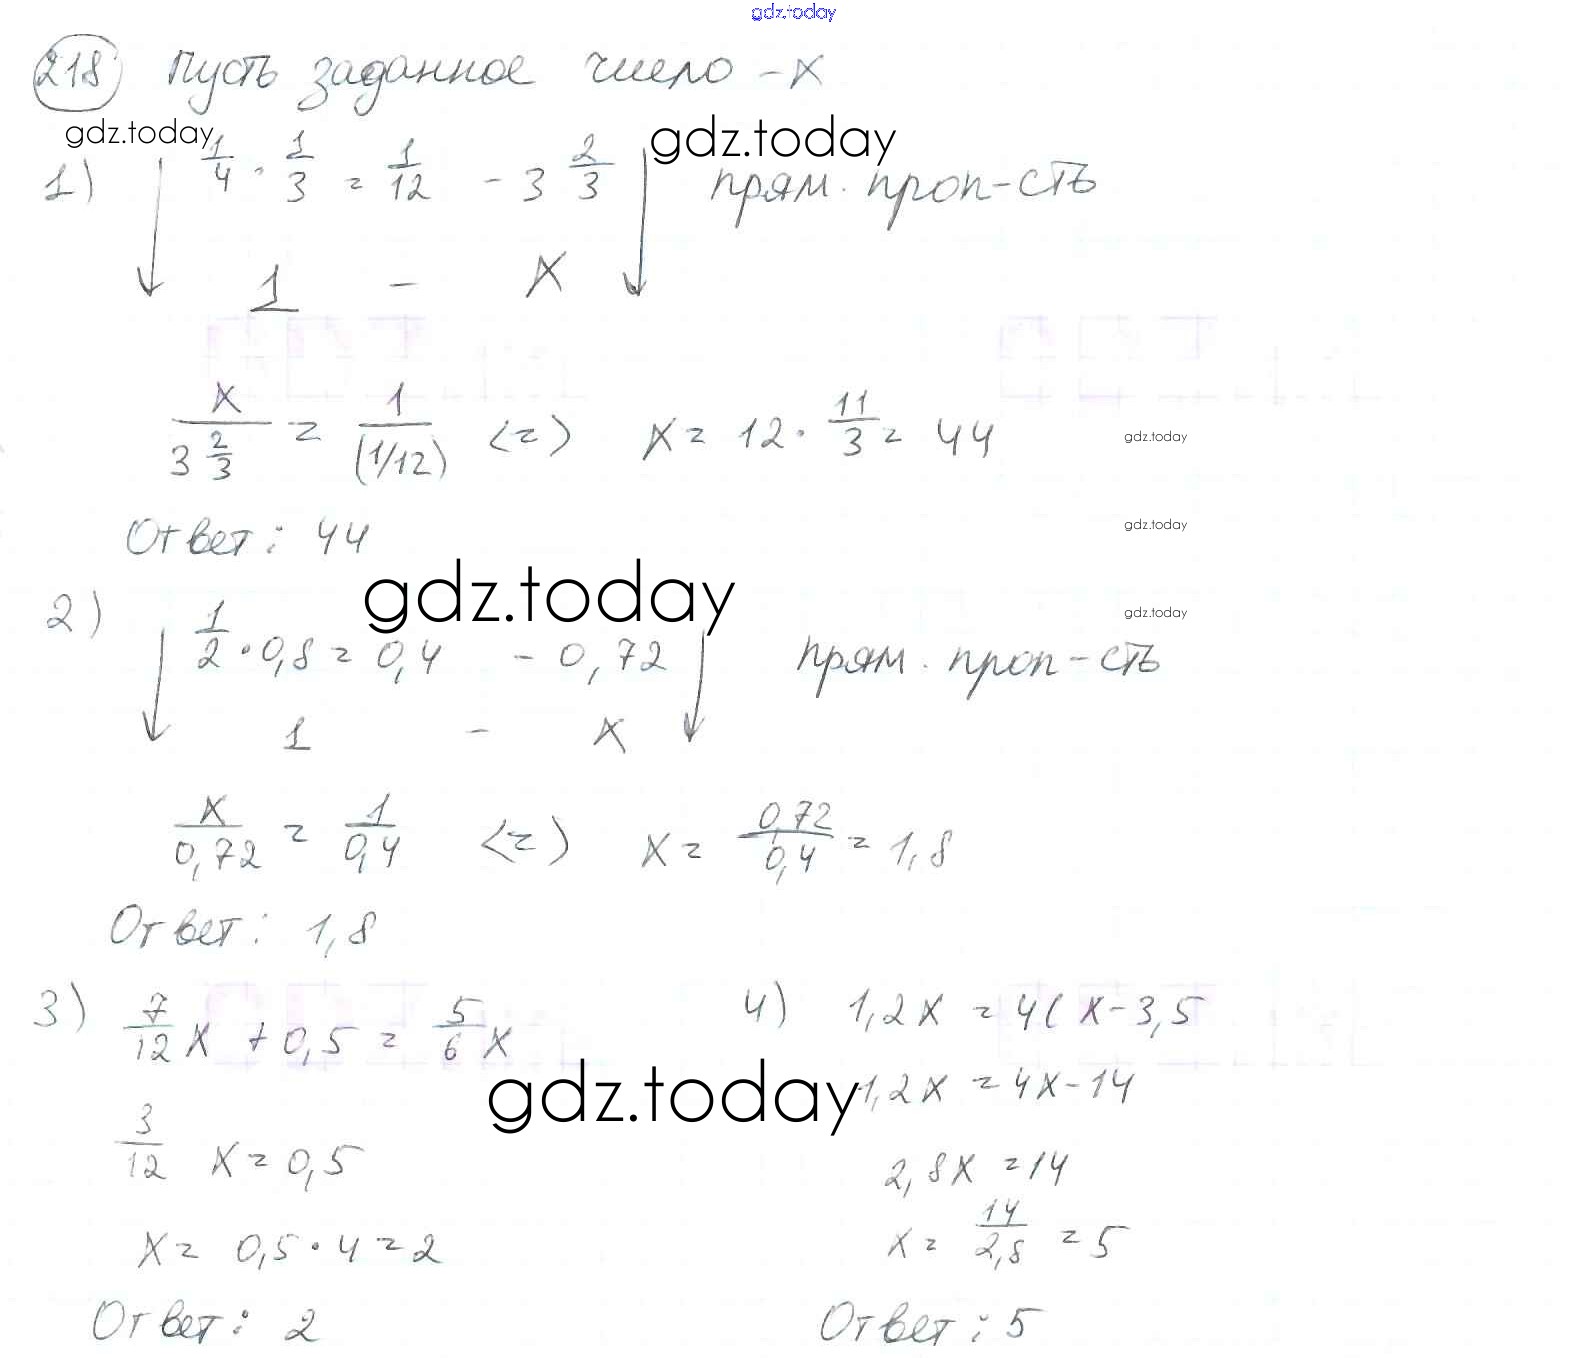 gdz.today
218 Пусть заданное число - x
gdz.today gdz.today
1) 1/4 · 1/3 = 1/12 - 3 2/3 прям. проп-сть
1 - x
x/(3 2/3) = 1/(1/12) <=> x = 12 · 11/3 = 44
gdz.today
Ответ: 44
gdz.today
gdz.today
gdz.today
2) 1/2 · 0,8 = 0,4 - 0,72 прям. проп-сть
1 - x
x/0,72 = 1/0,4 <=> x = 0,72/0,4 = 1,8
Ответ: 1,8
3) 7/12 x + 0,5 = 5/6 x
gdz.today
3/12 x = 0,5
x = 0,5 · 4 = 2
Ответ: 2
4) 1,2x = 4(x-3,5
1,2x = 4x-14
2,8x = 14
x = 14/2,8 = 5
Ответ: 5